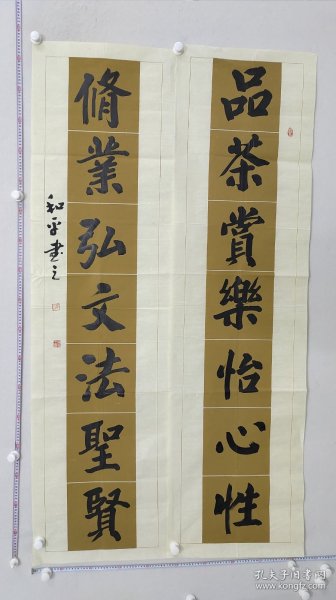 品茶賞樂怡心性
脩業弘文法聖賢
和平书之
孔夫子旧书网